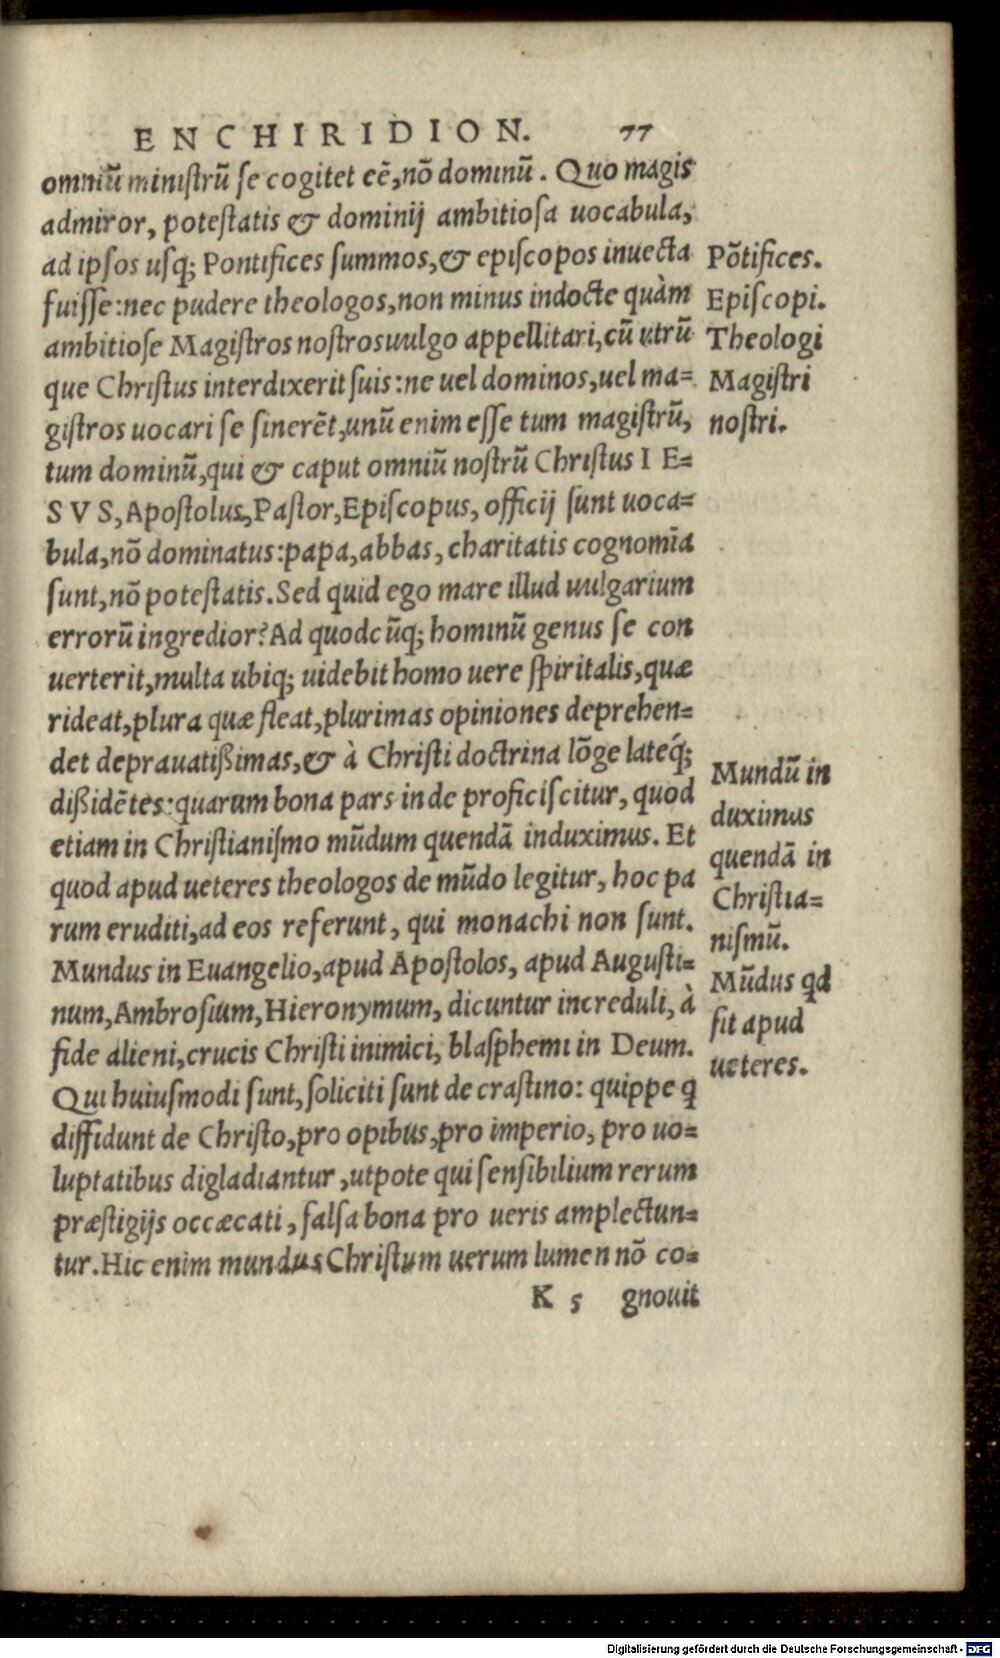 ENCHIRIDION. 77
omniū ministrū se cogitet eē, nō dominū. Quo magis
admiror, potestatis & dominij ambitiosa uocabula,
ad ipsos usq; Pontifices summos, & episcopos inuecta
fuisse: nec pudere theologos, non minus indocte quàm
ambitiose Magistros nostros uulgo appellitari, cū utrū
que Christus interdixerit suis: ne uel dominos, uel ma=
gistros uocari se sinerēt, unū enim esse tum magistrū,
tum dominū, qui & caput omniū nostrū Christus I E=
S V S, Apostolus, Pastor, Episcopus, officij sunt uoca=
bula, nō dominatus: papa, abbas, charitatis cognomīa
sunt, nō potestatis. Sed quid ego mare illud uulgarium
errorū ingredior? Ad quodcūq; hominū genus se con
uerterit, multa ubiq; uidebit homo uere spiritalis, quæ
rideat, plura quæ fleat, plurimas opiniones deprehen=
det deprauatißimas, & à Christi doctrina lōge lateq́;
dißidētes: quarum bona pars inde proficiscitur, quod
etiam in Christianismo mūdum quendā induximus. Et
quod apud ueteres theologos de mūdo legitur, hoc pa
rum eruditi, ad eos referunt, qui monachi non sunt.
Mundus in Euangelio, apud Apostolos, apud Augusti=
num, Ambrosium, Hieronymum, dicuntur increduli, à
fide alieni, crucis Christi inimici, blasphemi in Deum.
Qui huiusmodi sunt, soliciti sunt de crastino: quippe q
diffidunt de Christo, pro opibus, pro imperio, pro uo=
luptatibus digladiantur, utpote qui sensibilium rerum
præstigijs occæcati, falsa bona pro ueris amplectun=
tur. Hic enim mundus Christum uerum lumen nō co=
K 5 gnouit
Pōtifices.
Episcopi.
Theologi
Magistri
nostri.
Mundū in
duximus
quendā in
Christia=
nismū.
Mūdus qd
sit apud
ueteres.
Digitalisierung gefördert durch die Deutsche Forschungsgemeinschaft - DFG